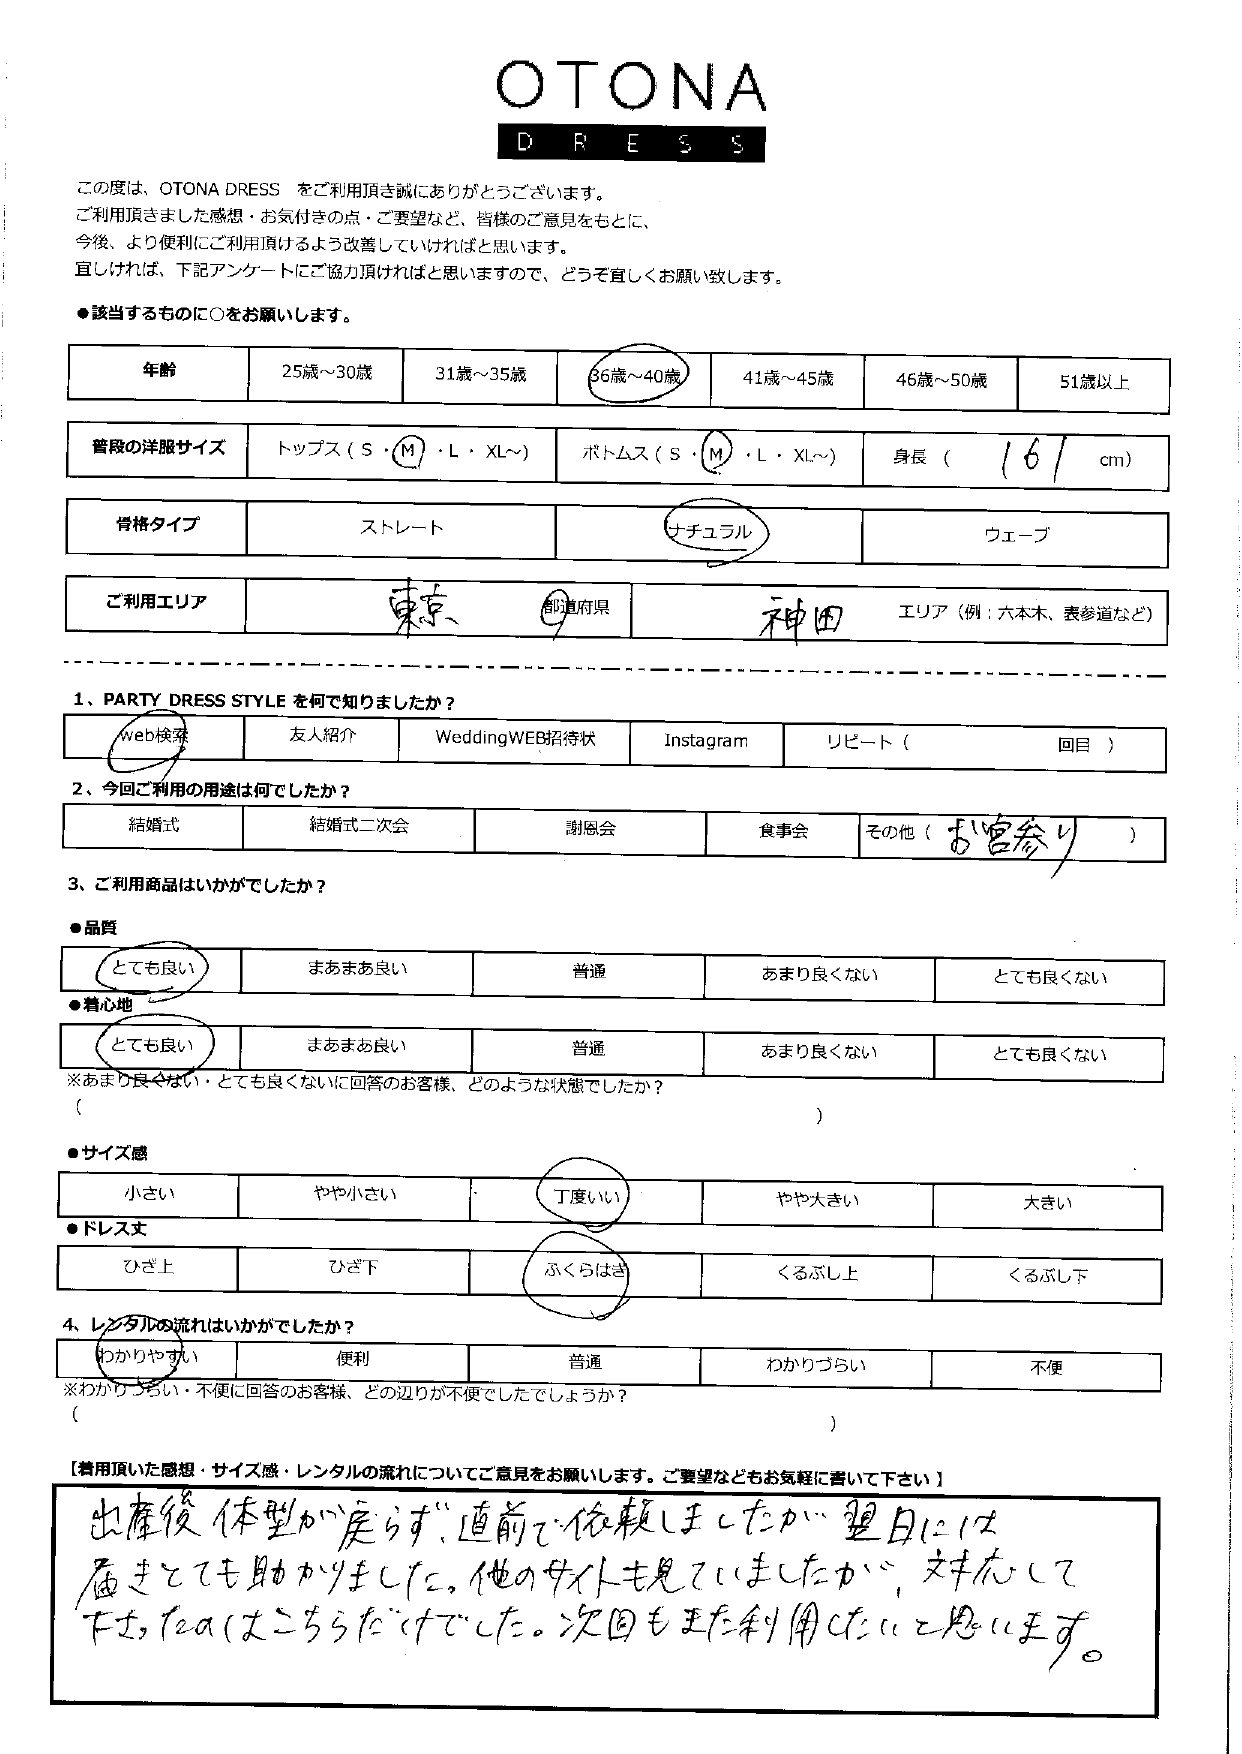 OTONA
DRESS
この度は、OTONA DRESS をご利用頂き誠にありがとうございます。
ご利用頂きました感想・お気付きの点・ご要望など、皆様のご意見をもとに、
今後、より便利にご利用頂けるよう改善していければと思います。
宜しければ、下記アンケートにご協力頂ければと思いますので、どうぞ宜しくお願い致します。
●該当するものに○をお願いします。
年齢 25歳～30歳 31歳～35歳 36歳～40歳 41歳～45歳 46歳～50歳 51歳以上
普段の洋服サイズ トップス ( S ・ M ・ L ・ XL～) ボトムス ( S ・ M ・ L ・ XL～) 身長 ( 161 cm)
骨格タイプ ストレート ナチュラル ウェーブ
ご利用エリア 東京 都道府県 神田 エリア（例：六本木、表参道など）
1、PARTY DRESS STYLE を何で知りましたか？
web検索 友人紹介 WeddingWEB招待状 Instagram リピート ( 回目 )
2、今回ご利用の用途は何でしたか？
結婚式 結婚式二次会 謝恩会 食事会 その他 ( お宮参り )
3、ご利用商品はいかがでしたか？
●品質
とても良い まあまあ良い 普通 あまり良くない とても良くない
●着心地
とても良い まあまあ良い 普通 あまり良くない とても良くない
※あまり良くない・とても良くないに回答のお客様、どのような状態でしたか？
( )
●サイズ感
小さい やや小さい 丁度いい やや大きい 大きい
●ドレス丈
ひざ上 ひざ下 ふくらはぎ くるぶし上 くるぶし下
4、レンタルの流れはいかがでしたか？
わかりやすい 便利 普通 わかりづらい 不便
※わかりづらい・不便に回答のお客様、どの辺りが不便でしたでしょうか？
( )
【着用頂いた感想・サイズ感・レンタルの流れについてご意見をお願いします。ご要望などもお気軽に書いて下さい】
出産後体型が戻らず、直前で依頼しましたが翌日には
届きとても助かりました。他のサイトも見ていましたが、対応して
下さったのはこちらだけでした。次回もまた利用したいと思います。